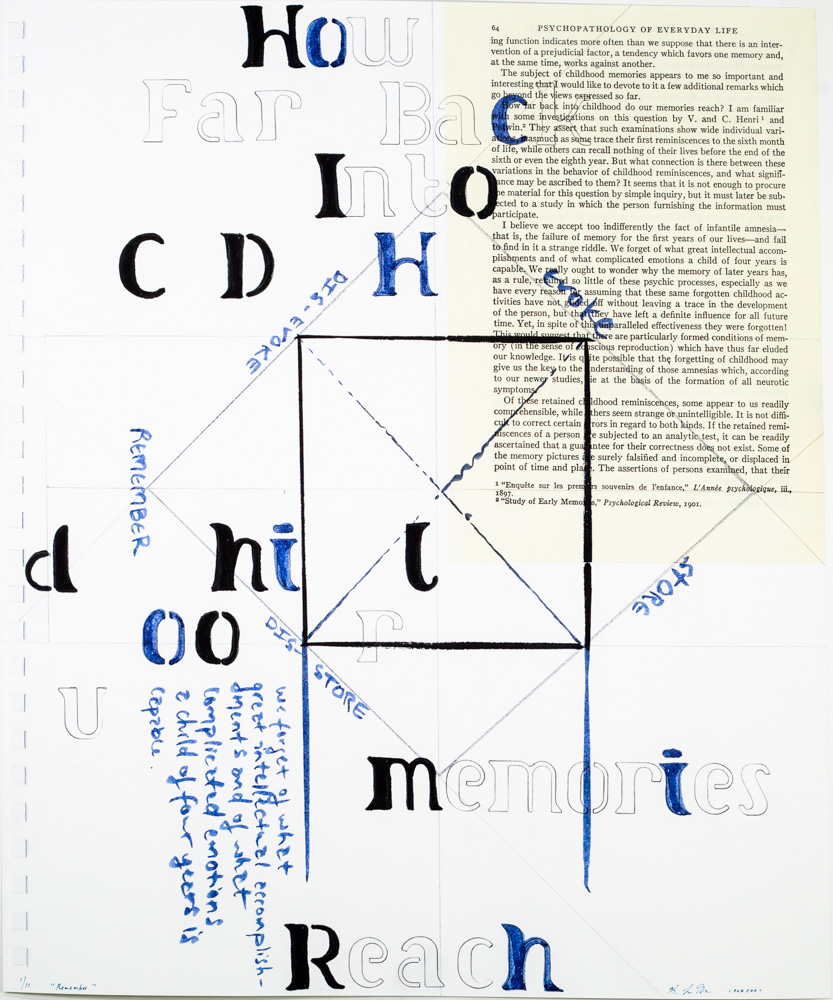 How
Far Back
Into
C D H
64 PSYCHOPATHOLOGY OF EVERYDAY LIFE
ing function indicates more often than we suppose that there is an inter-
vention of a prejudicial factor, a tendency which favors one memory and,
at the same time, works against another.
The subject of childhood memories appears to me so important and
interesting that I would like to devote to it a few additional remarks which
go beyond the views expressed so far.
How far back into childhood do our memories reach? I am familiar
with some investigations on this question by V. and C. Henri¹ and
Potwin.² They assert that such examinations show wide individual vari-
ations, inasmuch as some trace their first reminiscences to the sixth month
of life, while others can recall nothing of their lives before the end of the
sixth or even the eighth year. But what connection is there between these
variations in the behavior of childhood reminiscences, and what signifi-
cance may be ascribed to them? It seems that it is not enough to procure
the material for this question by simple inquiry, but it must later be sub-
jected to a study in which the person furnishing the information must
participate.
I believe we accept too indifferently the fact of infantile amnesia—
that is, the failure of memory for the first years of our lives—and fail
to find in it a strange riddle. We forget of what great intellectual accom-
plishments and of what complicated emotions a child of four years is
capable. We really ought to wonder why the memory of later years has,
as a rule, retained so little of these psychic processes, especially as we
have every reason for assuming that these same forgotten childhood ac-
tivities have not glided off without leaving a trace in the development
of the person, but that they have left a definite influence for all future
time. Yet, in spite of this unparalleled effectiveness they were forgotten!
This would suggest that there are particularly formed conditions of mem-
ory (in the sense of conscious reproduction) which have thus far eluded
our knowledge. It is quite possible that the forgetting of childhood may
give us the key to the understanding of those amnesias which, according
to our newer studies, lie at the basis of the formation of all neurotic
symptoms.
Of these retained childhood reminiscences, some appear to us readily
comprehensible, while others seem strange or unintelligible. It is not diffi-
cult to correct certain errors in regard to both kinds. If the retained remi-
niscences of a person are subjected to an analytic test, it can be readily
ascertained that a guarantee for their correctness does not exist. Some of
the memory pictures are surely falsified and incomplete, or displaced in
point of time and place. The assertions of persons examined, that their
¹ "Enquête sur les premiers souvenirs de l'enfance," L'Année psychologique, iii.,
1897.
² "Study of Early Memories," Psychological Review, 1901.
DIS-EVOKE
EVOKE
REMEMBER
STORE
DIS-STORE
d hi l
oo r
U
we forget of what
great intellectual accomplish-
ments and of what
complicated emotions
a child of four years is
capable.
memories
Reach
1/11 "Remember"